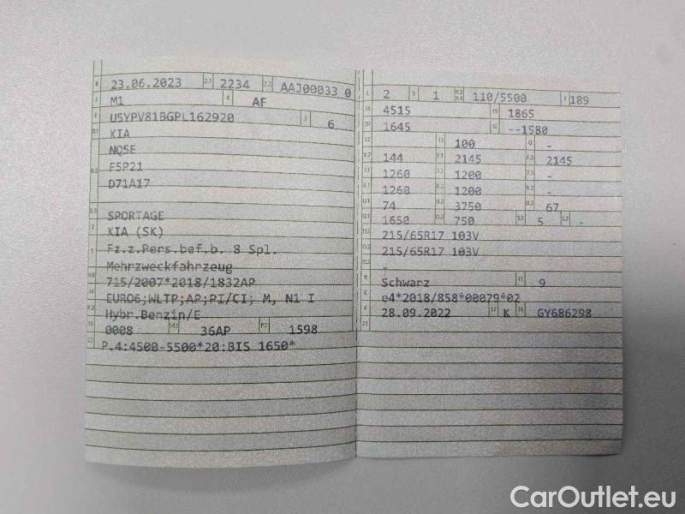 23.06.2023 2234 AAJ00033 0
M1 AF
U5YPV81BGPL162920 6
KIA
NQ5E
F5P21
D71A17
SPORTAGE
KIA (SK)
Fz.z.Pers.bef.b. 8 Spl.
Mehrzweckfahrzeug
715/2007*2018/1832AP
EURO6;WLTP;AP;PI/CI; M, N1 I
Hybr.Benzin/E
0008 36AP 1598
P.4:4500-5500*20:BIS 1650*
2 1 110/5500 189
4515 1865
1645 --1580
100 -
144 2145 2145
1260 1200 -
1260 1200 -
74 3750 67
1650 750 5 -
215/65R17 103V
215/65R17 103V
-
Schwarz 9
e4*2018/858*00079*02
28.09.2022 K GY686298
CarOutlet.eu